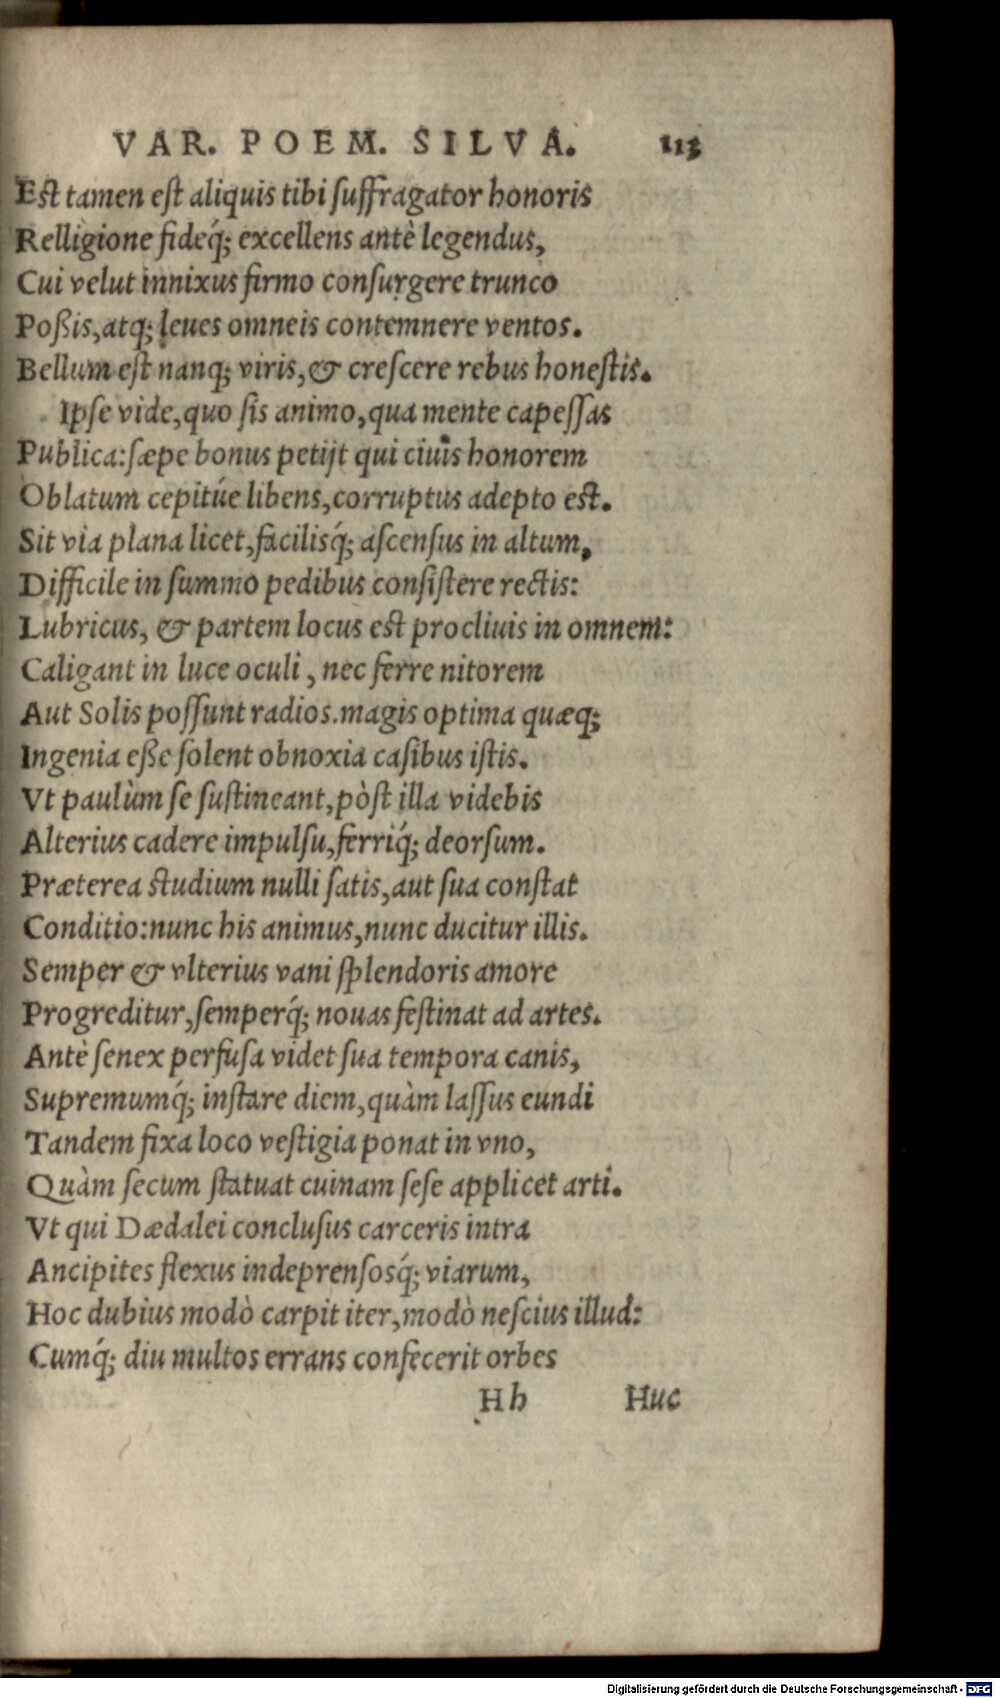 VAR. POEM. SILVA. 113
Est tamen est aliquis tibi suffragator honoris
Relligione fideq́; excellens antè legendus,
Cui velut innixus firmo consurgere trunco
Poßis, atq; leues omneis contemnere ventos.
Bellum est nanq; viris, & crescere rebus honestis.
Ipse vide, quo sis animo, qua mente capessas
Publica: sæpe bonus petijt qui ciuis honorem
Oblatum cepitúe libens, corruptus adepto est.
Sit via plana licet, facilisq́; ascensus in altum,
Difficile in summo pedibus consistere rectis:
Lubricus, & partem locus est procliuis in omnem:
Caligant in luce oculi, nec ferre nitorem
Aut Solis possunt radios. magis optima quæq;
Ingenia eße solent obnoxia casibus istis.
Vt paulùm se sustineant, pòst illa videbis
Alterius cadere impulsu, ferriq́; deorsum.
Præterea studium nulli satis, aut sua constat
Conditio: nunc his animus, nunc ducitur illis.
Semper & vlterius vani splendoris amore
Progreditur, semperq́; nouas festinat ad artes.
Antè senex perfusa videt sua tempora canis,
Supremumq́; instare diem, quàm lassus eundi
Tandem fixa loco vestigia ponat in vno,
Quàm secum statuat cuinam sese applicet arti.
Vt qui Dædalei conclusus carceris intra
Ancipites flexus indeprensosq́; viarum,
Hoc dubius modò carpit iter, modò nescius illud:
Cumq́; diu multos errans confecerit orbes
Hh Huc
Digitalisierung gefördert durch die Deutsche Forschungsgemeinschaft - DFG